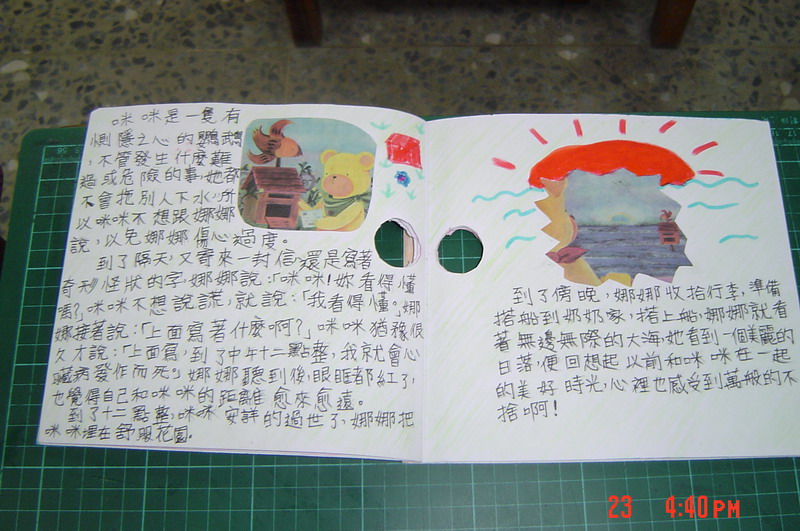 咪咪是一隻有
惻隱之心的鸚鵡
，不管發生什麼難
過或危險的事，她都
不會拖別人下水，所
以咪咪不想跟娜娜
說，以免娜娜傷心過度。
到了隔天，又寄來一封信，還是寫著
奇形怪狀的字，娜娜說：「咪咪！妳看得懂
嗎？」咪咪不想說謊，就說：「我看得懂。」娜
娜接著說：「上面寫著什麼啊？」咪咪猶豫很
久才說：「上面寫，到了中午十二點整，我就會心
臟病發作而死。」娜娜聽到後，眼眶都紅了，
也覺得自己和咪咪的距離愈來愈遠。
到了十二點整，咪咪安詳的過世了，娜娜把
咪咪埋在舒服花園。
到了傍晚，娜娜收拾行李，準備
搭船到奶奶家，搭上船，娜娜就看
著無邊無際的大海，她看到一個美麗的
日落，便回想起以前和咪咪在一起
的美好時光，心裡也感受到萬般的不
捨啊！
23 4:40PM